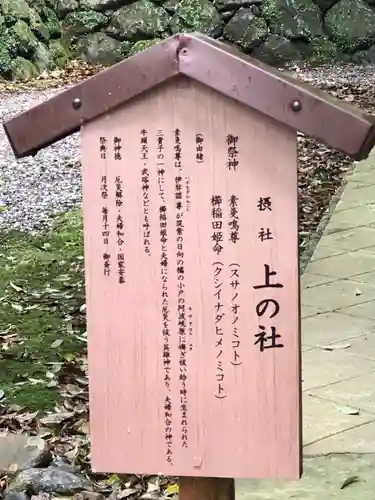 摂社 上の社
御祭神 素戔鳴尊(スサノオノミコト)
櫛稲田姫命(クシイナダヒメノミコト)
(御由緒)
素戔鳴尊は、伊弉諾尊が筑紫の日向の橘の小戸の阿波岐原に禊ぎ祓い給う時に生まれられた
三貴子の一神にして、櫛稲田姫命と夫婦になられた厄災を祓う英雄神であり、夫婦和合の神である。
牛頭天王・武塔神などとも呼ばれる。
御神徳 厄災解除・夫婦和合・国家安泰
祭典日 月次祭 毎月十四日 御斎行